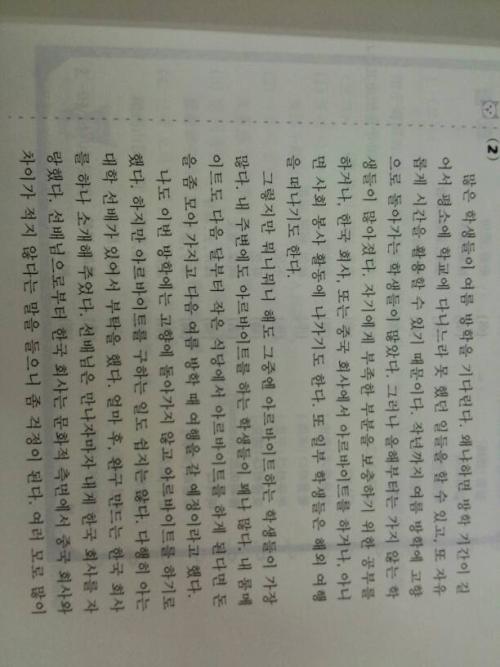 (2)
많은 학생들이 여름 방학을 기다린다. 왜냐하면 방학 기간이 길
어서 평소에 학교에 다니느라 못 했던 일들을 할 수 있고, 또 자유
롭게 시간을 활용할 수 있기 때문이다. 작년까지 여름 방학에 고향
으로 돌아가는 학생들이 많았다. 그러나 올해부터는 가지 않는 학
생들이 많아졌다. 자기에게 부족한 부분을 보충하기 위한 공부를
하거나, 한국 회사, 또는 중국 회사에서 아르바이트를 하거나, 아니
면 사회 봉사 활동에 나가기도 한다. 또 일부 학생들은 해외 여행
을 떠나기도 한다.
그렇지만 뭐니뭐니 해도 그중에 아르바이트하는 학생들이 가장
많다. 내 주변에도 아르바이트를 하는 학생들이 꽤나 많다. 내 룸메
이트도 다음 달부터 작은 식당에서 아르바이트를 하게 된다면 돈
을 좀 모아 가지고 다음 여름 방학 때 여행을 갈 예정이라고 했다.
나도 이번 방학에는 고향에 돌아가지 않고 아르바이트를 하기로
했다. 하지만 아르바이트를 구하는 일도 쉽지는 않다. 다행히 아는
대학 선배가 있어서 부탁을 했다. 얼마 후, 완구 만드는 한국 회사
를 하나 소개해 주었다. 선배님은 만나자마자 내게 한국 회사를 자
랑했다. 선배님으로부터 한국 회사는 문화적 측면에서 중국 회사와
차이가 적지 않다는 말을 들으니 좀 걱정이 된다. 여러 모로 많이